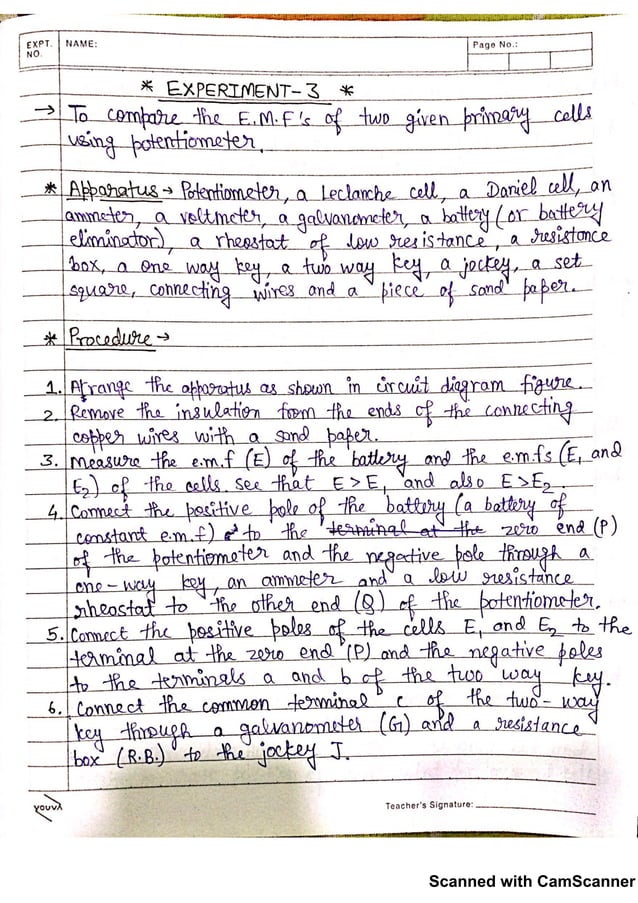 EXPT. NO.
NAME:
Page No.:
* EXPERIMENT-3 *
→ To compare the E.M.F's of two given primary cells
using potentiometer.
* Apparatus → Potentiometer, a Leclanche cell, a Daniel cell, an
ammeter, a voltmeter, a galvanometer, a battery (or battery
eliminator), a rheostat of low resistance, a resistance
box, a one way key, a two way key, a jockey, a set
square, connecting wires and a piece of sand paper.
* Procedure →
1. Arrange the apparatus as shown in circuit diagram figure.
2. Remove the insulation from the ends of the connecting
copper wires with a sand paper.
3. Measure the e.m.f (E) of the battery and the e.m.fs (E1 and
E2) of the cells. See that E > E1 and also E > E2.
4. Connect the positive pole of the battery (a battery of
constant e.m.f) to the terminal at the zero end (P)
of the potentiometer and the negative pole through a
one-way key, an ammeter and a low resistance
rheostat to the other end (Q) of the potentiometer.
5. Connect the positive poles of the cells E1 and E2 to the
terminal at the zero end (P) and the negative poles
to the terminals a and b of the two way key.
6. Connect the common terminal c of the two-way
key through a galvanometer (G) and a resistance
box (R.B.) to the jockey J.
YOUVA
Teacher's Signature:
Scanned with CamScanner